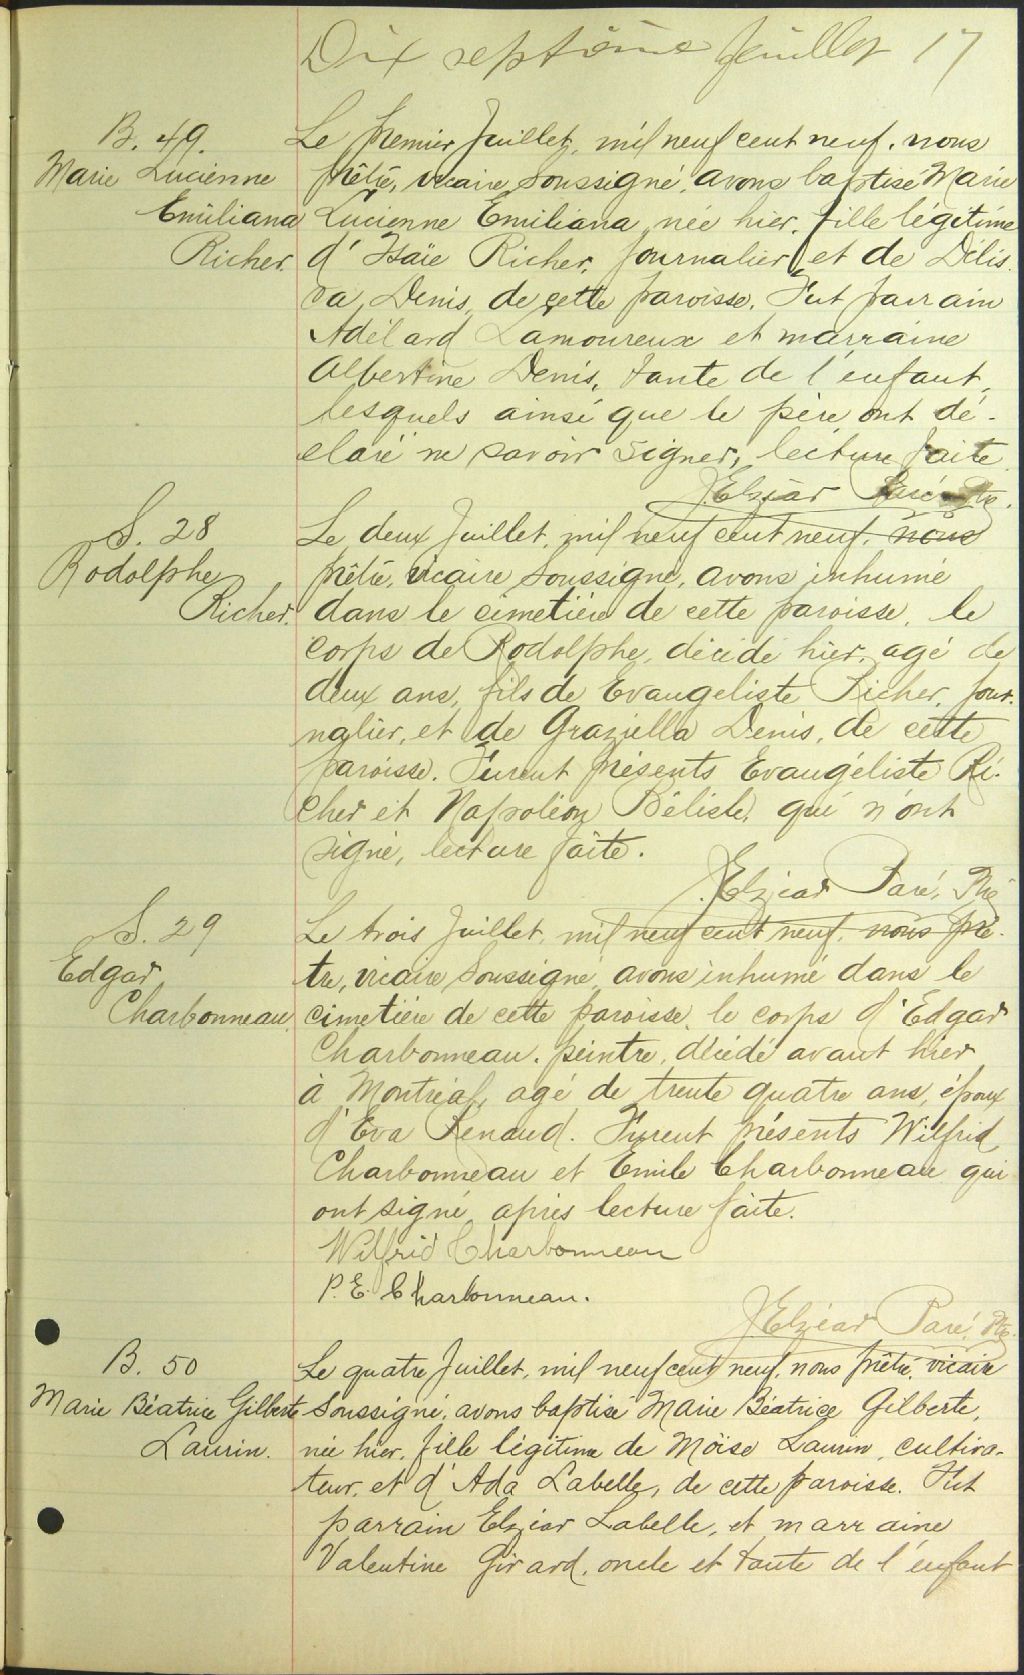 Dix septième feuillet 17
B. 49.
Marie Lucienne
Emiliana
Richer.
Le premier Juillet, mil neuf cent neuf, nous
prêtre, vicaire soussigné, avons baptisé Marie
Lucienne Emiliana, née hier, fille légitime
d'Isaïe Richer, journalier, et de Délis
va, Denis, de cette paroisse. Fut parrain
Adélard Lamoureux et marraine
Albertine Denis, tante de l'enfant,
lesquels ainsi que le père ont dé-
claré ne savoir signer, lecture faite
J. Elzéar Paré Ptre.
S. 28
Rodolphe
Richer.
Le deux Juillet, mil neuf cent neuf, nous
prêtre, vicaire soussigné, avons inhumé
dans le cimetière de cette paroisse, le
corps de Rodolphe, décédé hier, agé de
deux ans, fils de Evangeliste Richer, jour-
nalier, et de Graziella Denis, de cette
paroisse. Furent présents Evangéliste Ri-
cher et Napoléon Bélisle, qui n'ont
signé, lecture faite.
J. Elzéar Paré, Ptre
S. 29
Edgar
Charbonneau
Le trois Juillet, mil neuf cent neuf, nous prê-
tre, vicaire soussigné avons inhumé dans le
cimetière de cette paroisse, le corps d'Edgar
Charbonneau, peintre, décédé avant hier
à Montréal, agé de trente quatre ans, époux
d'Eva Renaud. Furent présents Wilfrid
Charbonneau et Emile Charbonneau qui
ont signé après lecture faite.
Wilfrid Charbonneau
P. E. Charbonneau.
J. Elzéar Paré, Ptre.
B. 50
Marie Béatrice Gilberte
Laurin.
Le quatre Juillet, mil neuf cent neuf, nous prêtre, vicaire
soussigné, avons baptisé Marie Béatrice Gilberte,
née hier, fille légitime de Moïse Laurin, cultiva-
teur, et d'Ada Labelle, de cette paroisse. Fut
parrain Elzéar Labelle, et marraine
Valentine Girard, oncle et tante de l'enfant